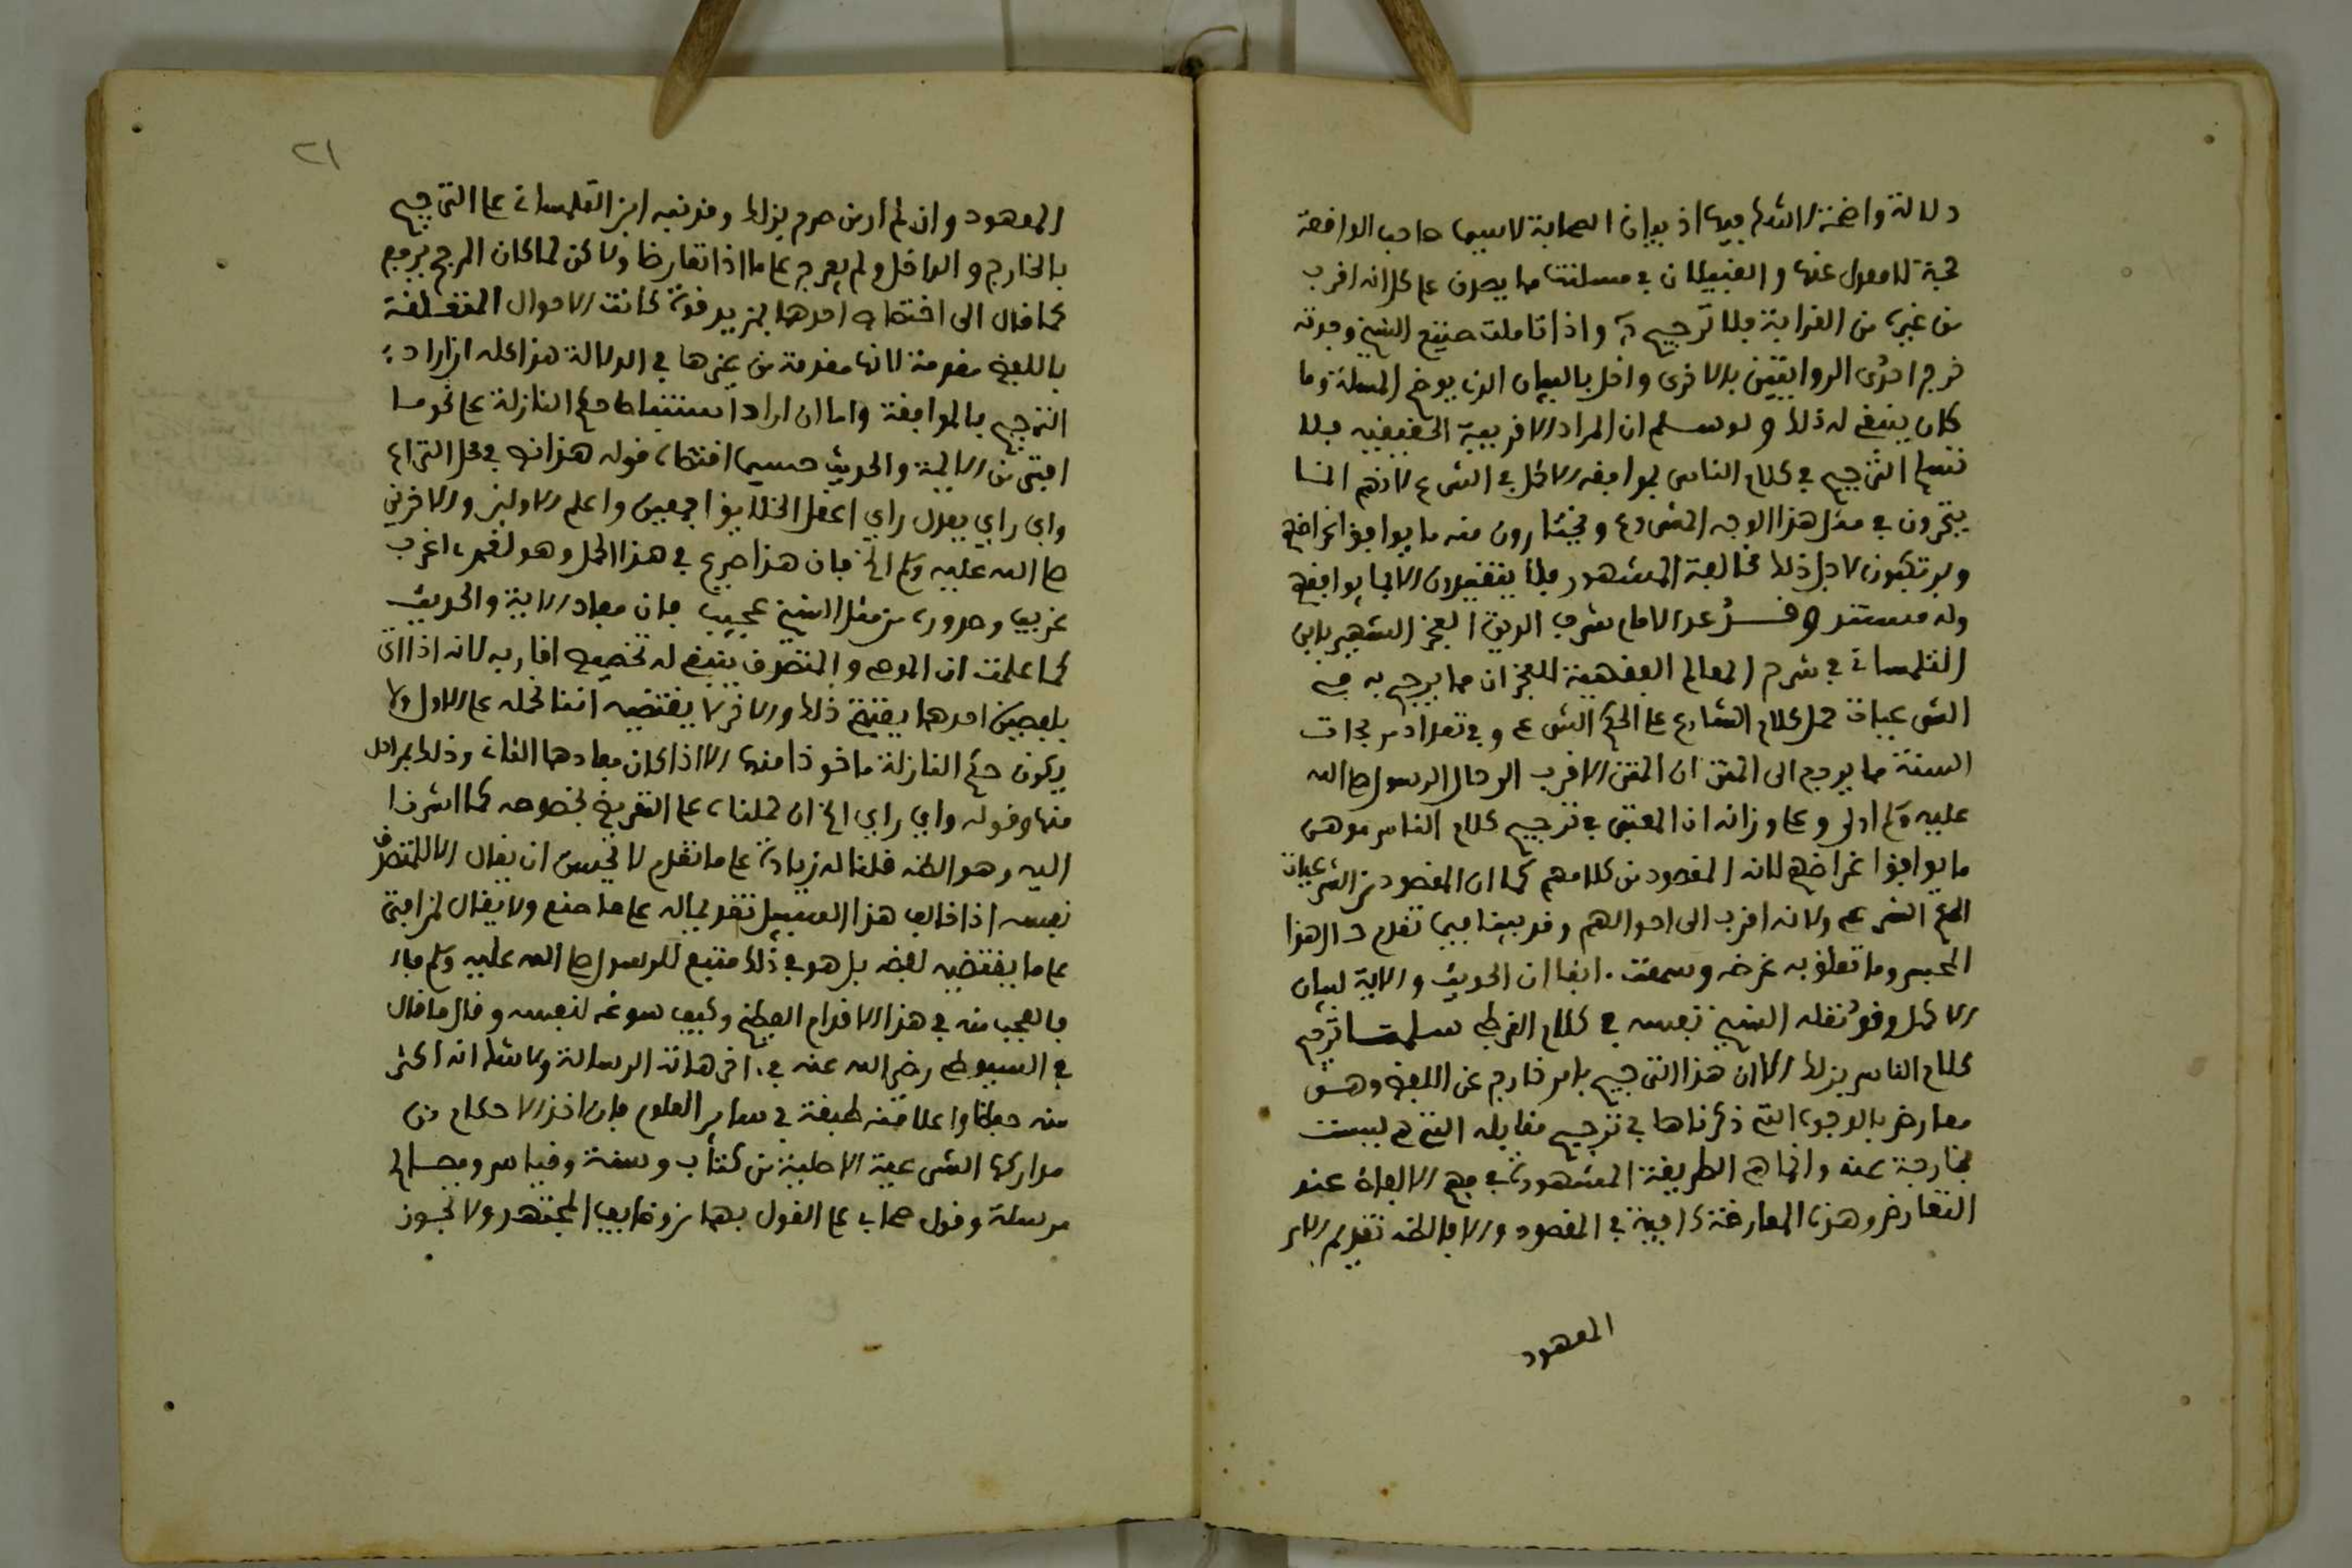 دلالة واضحة لا شك فيها اذ بيان الصحابة لا سيما صاحب الواقعة
حجة لا معدل عنها و القبيلان في مسئلتنا مما يصدق على كل انه اقرب
من غيره من القرابة بلا ترجيح به واذا تاملت صنيع الشيخ وجدته
خرج احدى الروايتين بالاخرى واخل بالبيان الذي يوضح المسئلة وما
كان ينبغي له ذلك ولو سلم ان المراد الاقربية الحقيقية بلا
نسلم الترجيح في كلام الناس بموافقة الاكمل في الشرع لانهم انما
يتحرون في مثل هذا الوجه المشروع ويختارون منه ما يوافق اغراضهم
ويرتكبون لاجل ذلك مخالفة المشهور فلا يتقيدون الا بما يوافقهم
وله مستند وقد عد الامام شرف الدين الفخر الشهير بابن
التلمساني في شرح المعالم الفقهية للفخر ان مما يرجح به في
الشرعيات حمل كلام الشارع على الحكم الشرعي وفي تعداد مرجحات
السنة مما يرجع الى المتن ان المتن الاقرب الى حال الرسول صلى الله
عليه وسلم اولى وعلى وزانه ان المعتبر في ترجيح كلام الناس هو
ما يوافق اغراضهم لانه المقصود من كلامهم كما ان المقصود من الشرعيات
الحكم الشرعي ولانه اقرب الى احوالهم وقد بينا فيما تقدم حال هذا
المحبس وما تعلق به غرضه وسمعت انفا ان الحديث والاية لبيان
الاكمل وقد نقله الشيخ نفسه في كلام القرطبي سلمنا ترجيح
كلام الناس بذلك الا ان هذا الترجيح بامر خارج عن اللفظ وهو
معارض بالوجوه التي ذكرناها في ترجيح مقابله التي هي ليست
بخارجة عنه وانما هي الطريقة المشهودة في فهم الالفاظ عند
التعارض وهذه المعارضة كافية في المقصود والا فالظن تقديم الامر
المعهود
٢١
المعهود وان لم ار من صرح بذلك وقد نبه ابن التلمساني على الترجيح
بالخارج و الداخل ولم يعرج على ما اذا تعارضا ولاكن لما كان المرجح يرجع
كما قال الى اختصاص احدهما بمزيد قوة كانت الاحوال المتعلقة
باللفظ مقدمة لانها مقدمة من غيرها في الدلالة هذا كله ان اراد
الترجيح بالموافقة واما ان اراد استنباط حكم النازلة على نحو ما
افتى من الاية والحديث حسبما اقتضاه قوله هذا نص في محل النزاع
واي راي يعدل راي اعقل الخلايق اجمعين واعلم الاولين والاخرين
صلى الله عليه وسلم الخ فان هذا صريح في هذا المحمل وهو لعمري اغرب
غريب وصدوره من مثل الشيخ عجيب فان مفاد الاية والحديث
كما علمت ان الموصي و المتصرف ينبغي له تخصيص اقاربه لانه اذا اتى
بلفظين احدهما يقتضي ذلك والاخر لا يقتضيه اننا نحمله على الاول ولا
يكون حكم النازلة ماخوذا منها الا اذا كان مفادها الثاني وذلك بمراحل
منها وقوله واي راي الخ ان حملناه على التقريظ بخصوصه كما اشرنا
اليه وهو الظن قلنا له زيادة على ما تقدم لا يحسن ان يقال الا للمتصرف
نفسه اذا خالف هذا السبيل تقديما له على ما صنع ولا يقال لمن افتى
على ما يقتضيه لفظه بل هو في ذلك متبع للرسول صلى الله عليه وسلم
فالعجب منه في هذا الاقدام العظيم وكيف سوغه لنفسه وقال ما قال
في السيوطي رضي الله عنه في اخر هاته الرسالة ولا شك انه اكثر
منه حفظا واعلا منه طبقة في ساير العلوم فان اخذ الاحكام من
مداركها الشرعية الاصلية من كتاب وسنة وقياس ومصالح
مرسلة وقول صحابي على القول بهما من وظايف المجتهد ولا يجوز